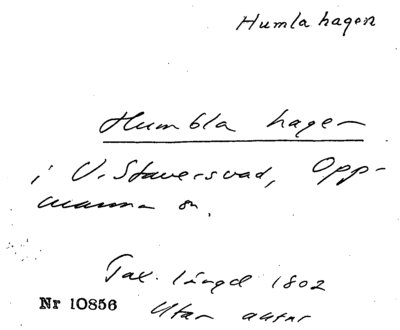 Humlahagen
Humbla hagen
i V. Staversvad, Opp-
manna sn.
Tax. längd 1802
Nr 10856
Utan autor